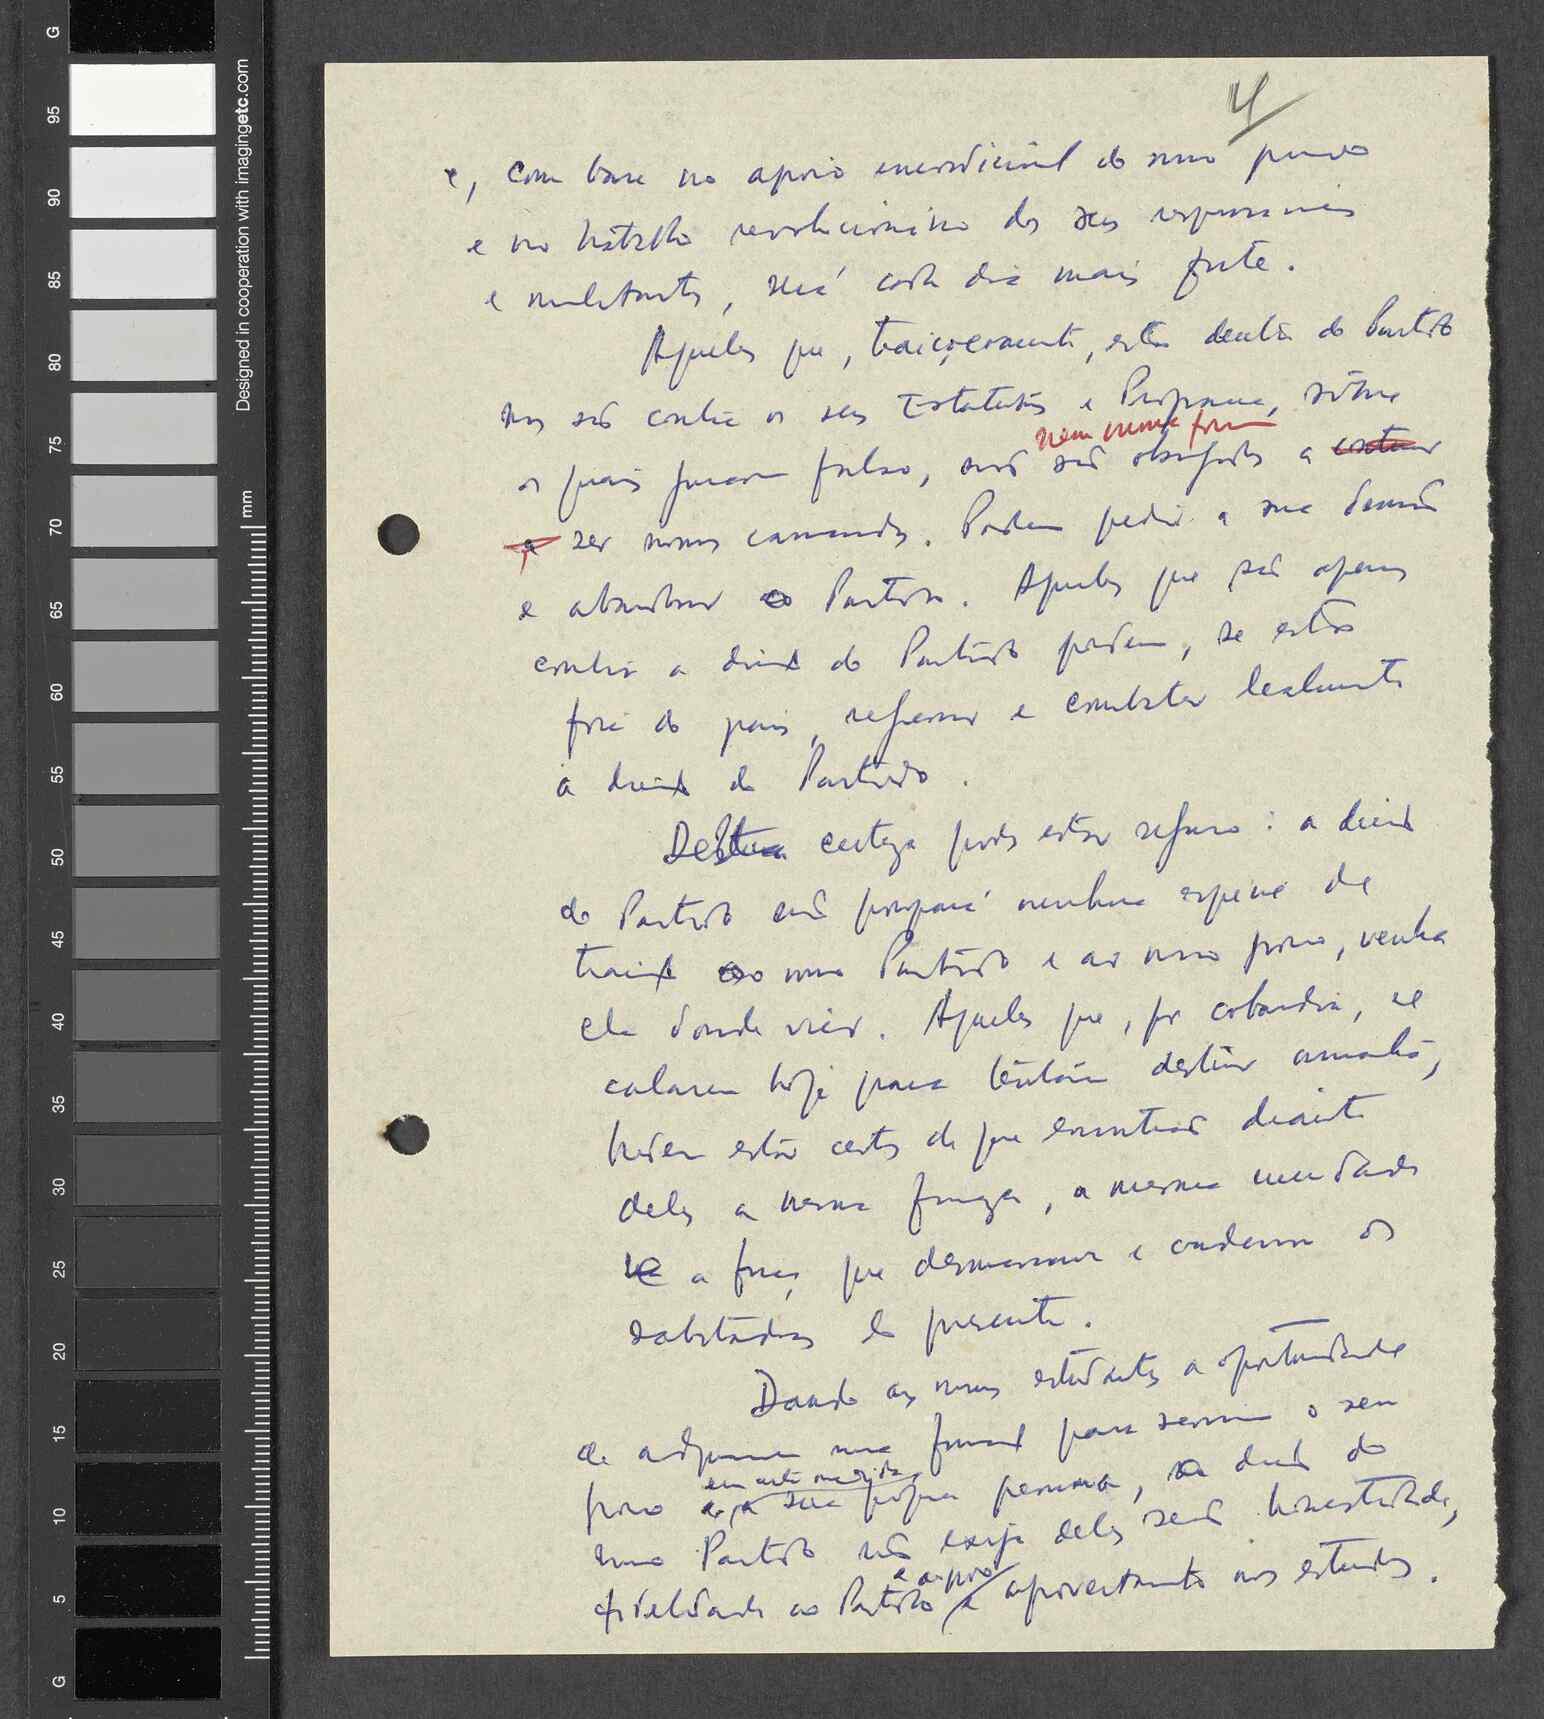 4
e, com base no apoio incondicional do nosso povo
e no trabalho revolucionário dos seus responsáveis
e militantes, será cada dia mais forte.
Aqueles que, traiçoeiramente, estão dentro do Partido
mas são contra os seus Estatutos e Programa, sobre
nem nunca foram
os quais juraram falso, não são obrigados a
ser nossos camaradas. Podem pedir a sua demissão
e abandonar o Partido. Aqueles que são apenas
contra a direcção do Partido podem, se estão
fora do país, regressar e combater lealmente
a direcção do Partido.
Desta certeza podes estar seguro: a direcção
do Partido não poupará nenhuma espécie de
traição ao nosso Partido e ao nosso povo, venha
ela donde vier. Aqueles que, por cobardia, se
calarem hoje para tentarem destruir amanhã,
podem estar certos de que encontrarão diante
deles a mesma firmeza, a mesma
a força que desmascara e condena os
sabotadores do presente.
Dando aos nossos estudantes a oportunidade
de adquirirem uma formação para servirem o seu
em certa medida
povo e, a sua própria pessoa, a direcção do
nosso Partido não exige deles senão honestidade,
e ao povo
fidelidade ao Partido e aproveitamento nos estudos.
G
95
90
85
80
75
70
65
60
55
50
45
40
35
30
25
20
15
10
5
G
Designed in cooperation with imagingetc.com
mm